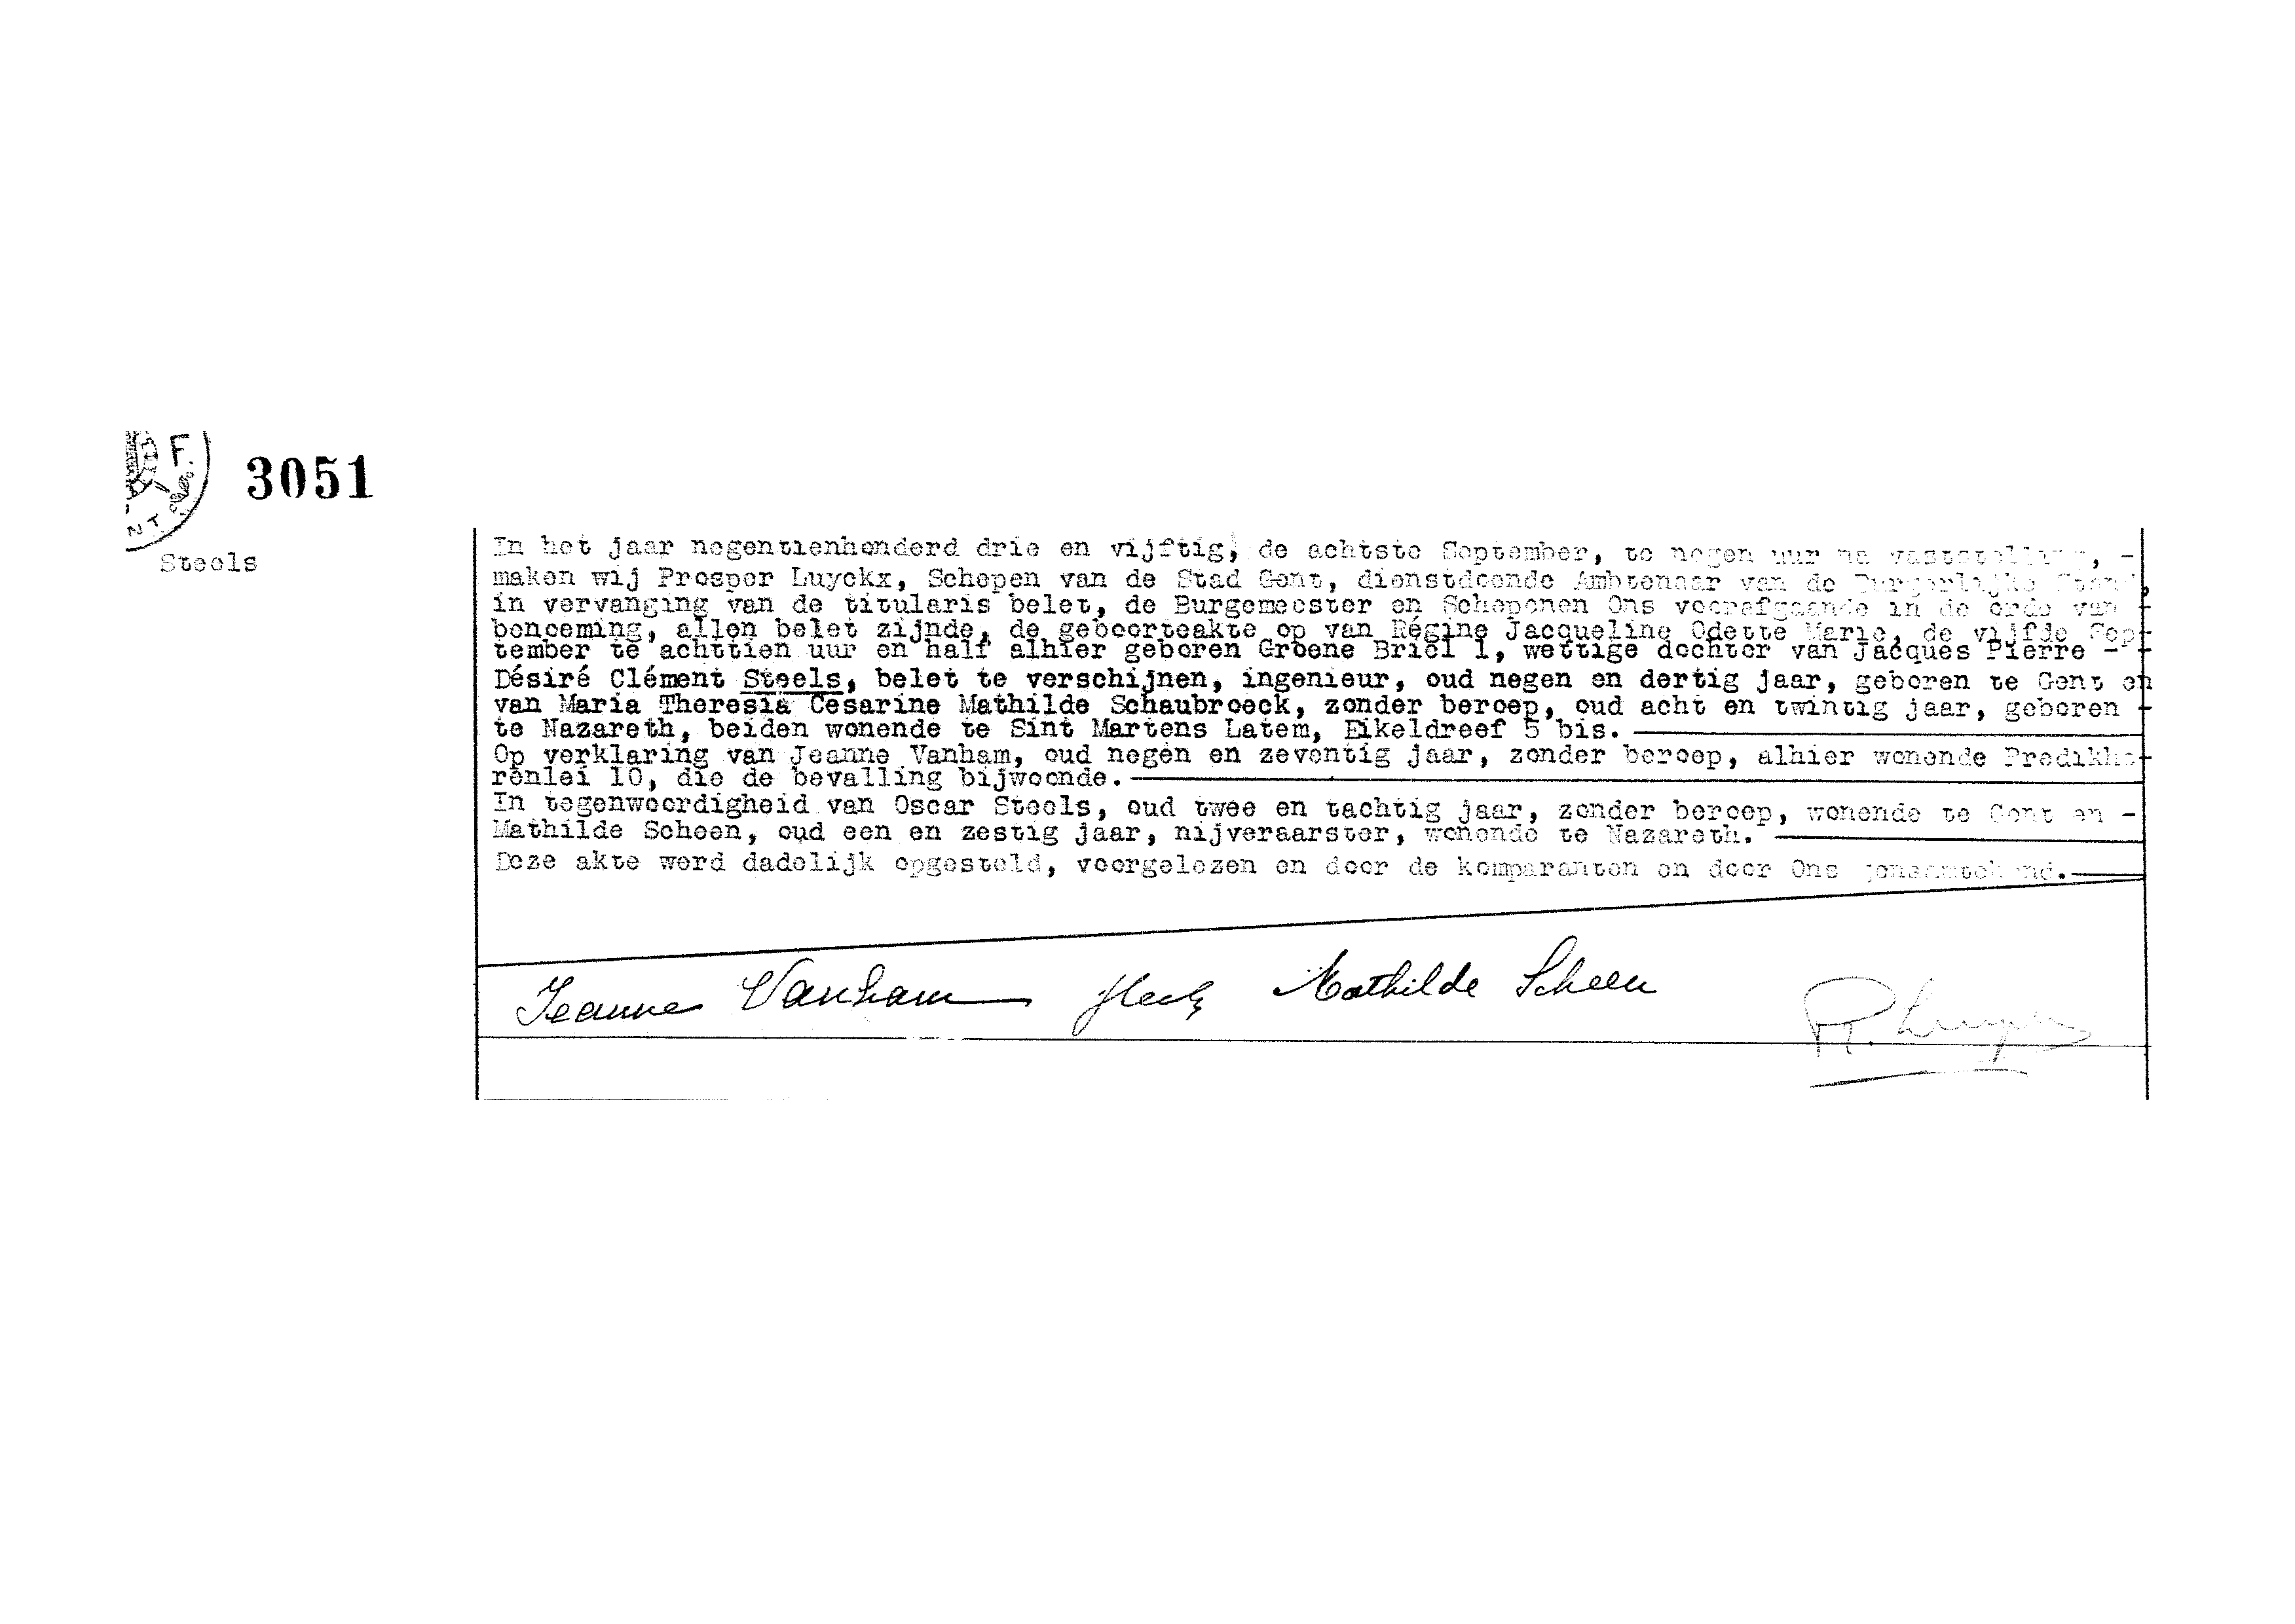 F.
NT
3051
Steels
In het jaar negentienhonderd drie en vijftig, de achtste September, te negen uur na vaststelling, -
maken wij Prosper Luyckx, Schepen van de Stad Gent, dienstdoende Ambtenaar van de Burgerlijke Stand,
in vervanging van de titularis belet, de Burgemeester en Schepenen Ons voorafgaande in de orde van -
benoeming, allen belet zijnde, de geboorteakte op van Régine Jacqueline Odette Marie, de vijfde Sep-
tember te achttien uur en half alhier geboren Groene Briel 1, wettige dochter van Jacques Pierre - -
Désiré Clément Steels, belet te verschijnen, ingenieur, oud negen en dertig jaar, geboren te Gent en
van Maria Theresia Cesarine Mathilde Schaubroeck, zonder beroep, oud acht en twintig jaar, geboren -
te Nazareth, beiden wonende te Sint Martens Latem, Eikeldreef 5 bis.
Op verklaring van Jeanne Vanham, oud negen en zeventig jaar, zonder beroep, alhier wonende Predikhe-
renlei 10, die de bevalling bijwoonde.
In tegenwoordigheid van Oscar Steels, oud twee en tachtig jaar, zonder beroep, wonende te Gent en -
Mathilde Scheen, oud een en zestig jaar, nijveraarster, wonende te Nazareth.
Deze akte werd dadelijk opgesteld, voorgelezen en door de komparanten en door Ons
Jeanne Vanham Mathilde Scheen